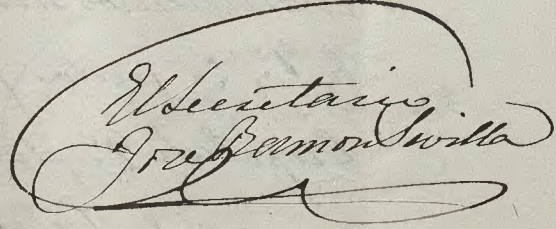 El Secretario
Jose Ramon Sevilla